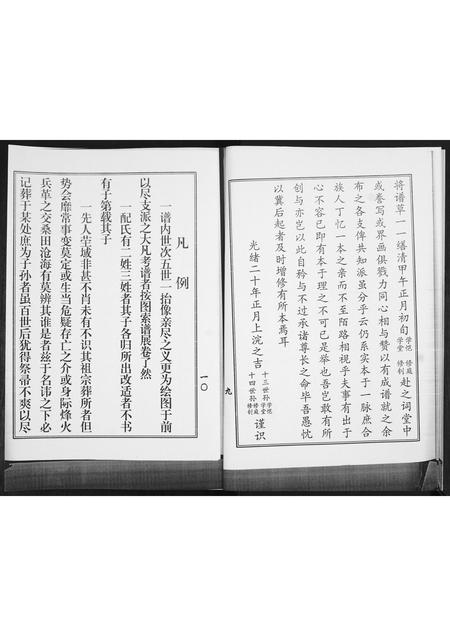 将谱草一一缮清甲午正月初旬学恺学堂修庭修钊赴之词堂中
或誊写或界画俱戮力同心相与赞以有成谱就之余
布之各支俾共知派虽分乎云仍系实本于一脉庶合
族人丁忆一本之亲而不至陌路相视乎夫事有出于
心不容已即有本于理之不可已是举也吾岂敢有所
创与亦岂以此自矜与不过承诸尊长之命毕吾愚忱
以冀后起者及时增修有所本焉耳
光绪二十年正月上浣之吉
十三世孙学恺学堂
十四世孙修庭修钊
谨识
九
凡例
一谱内世次五世一抬像亲尽之义更为绘图于前
以尽支派之大凡考谱者按图索谱展卷了然
一配氏有二姓三姓者其子各归所出改适者不书
有子第载其子
一先人茔域非甚不肖未有不识其祖宗葬所者但
势会靡常事变莫定或生当危疑存亡之介或身际烽火
兵革之交桑田沧海有莫辨其谁是者兹于名讳之下必
记葬于某处庶为子孙者虽百世后犹得祭帚不爽以尽
一〇